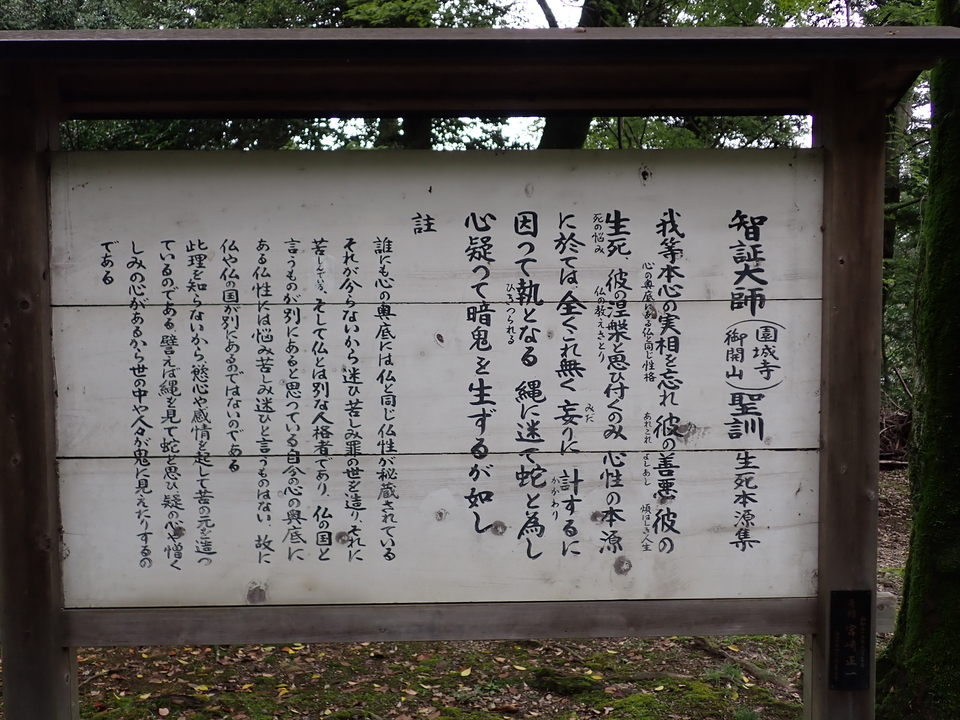 智証大師(園城寺御開山)聖訓 生死本源集
我等本心の実相を忘れ 彼の善悪 彼の
心の奥底にある仏と同じ性格 あれこれ よしあし 煩はしき人生
生死 彼の涅槃と思ひ付くのみ 心性の本源
死の悩み 仏の教えさとり
に於ては全くこれ無く 妄りに 計するに
みだ かかわり
因つて執となる 縄に迷て蛇と為し
ひろつられる
心疑つて暗鬼を生ずるが如し
註
誰にも心の奥底には仏と同じ仏性が秘蔵されている
それが分らないから迷ひ苦しみ罪の世を造り、それに
苦しんでいる、そして仏とは別な人格者であり、仏の国と
言うものが別にあると思つている自分の心の奥底に
ある仏性には悩み苦しみ迷ひと言うものはない、故に
仏や仏の国が別にあるのではないのである
此理を知らないから、慾心や感情を起して苦の元を造つ
ているのである、譬えば縄を見て蛇と思ひ、疑の心や憎く
しみの心があるから世の中や人々が鬼に見えたりするの
である